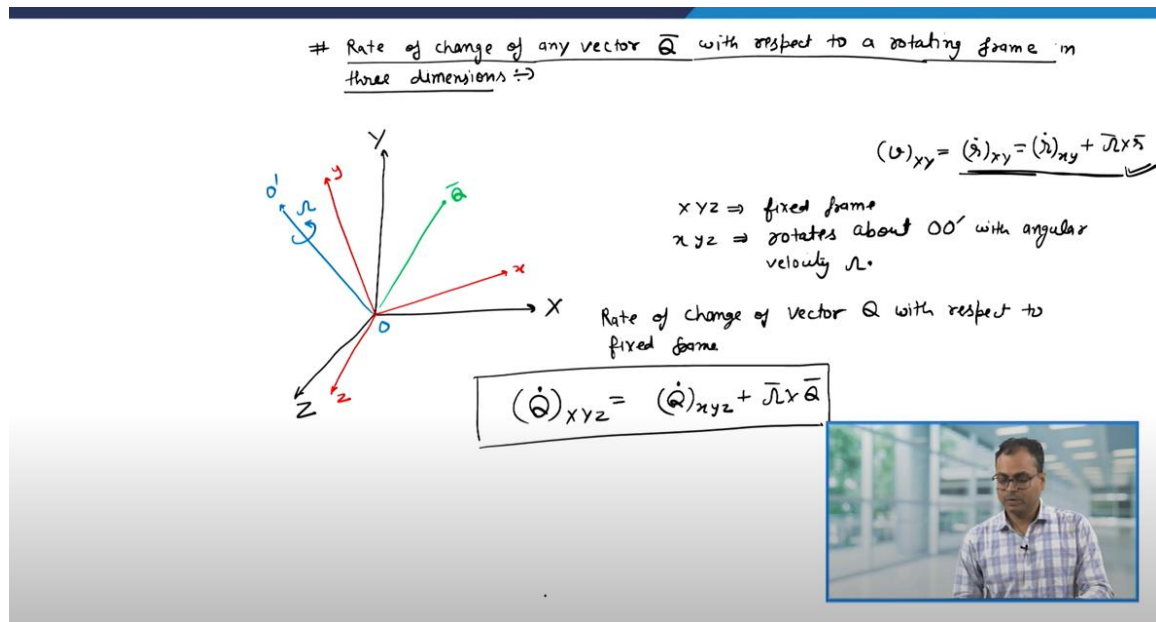 # Rate of change of any vector Q̄ with respect to a rotating frame in
three dimensions ÷>
(v)XY = (ṙ)XY = (ṙ)xy + Ω̄ x r̄
XYZ ⇒ fixed frame
xyz ⇒ rotates about OO' with angular
velocity Ω.
Rate of change of vector Q with respect to
fixed frame
(Q̇)XYZ = (Q̇)xyz + Ω̄ x Q̄
Y
y
O'
Ω
Q̄
x
X
O
Z
z